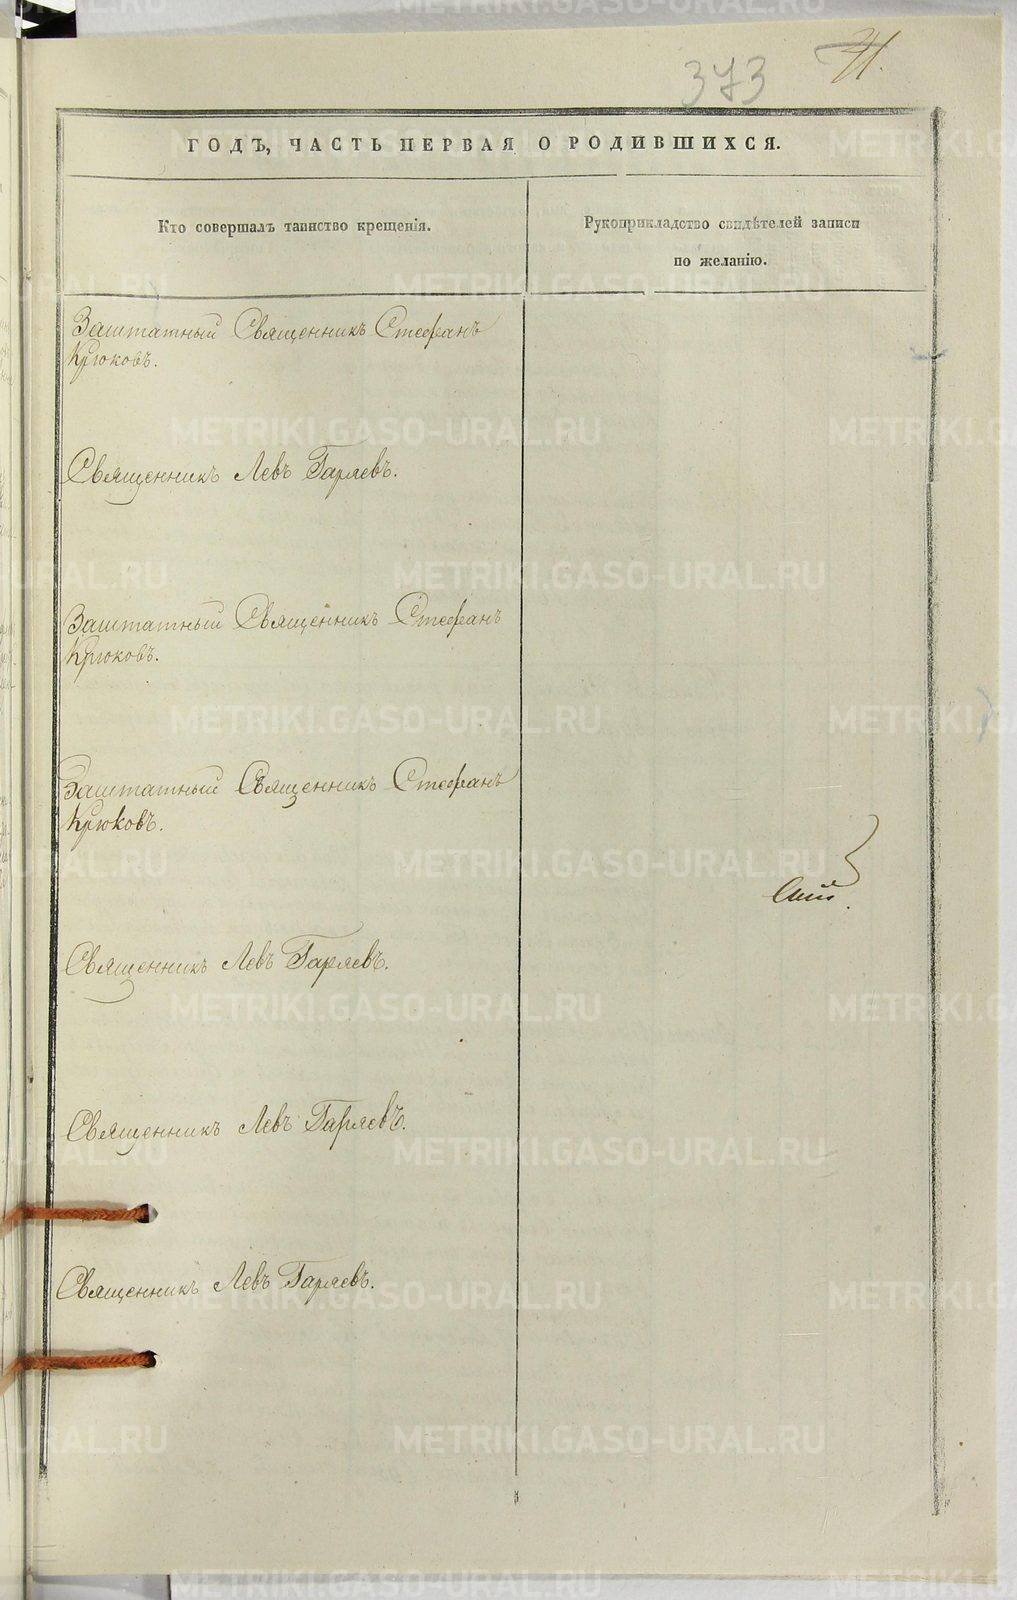 373
ГОДЪ, ЧАСТЬ ПЕРВАЯ О РОДИВШИХСЯ.
Кто совершалъ таинство крещенія.
Рукоприкладство свидѣтелей записи
по желанію.
Заштатный Священникъ Стефанъ
Крюковъ.
Священникъ Левъ Гаряевъ.
Заштатный Священникъ Стефанъ
Крюковъ.
Заштатный Священникъ Стефанъ
Крюковъ.
Священникъ Левъ Гаряевъ.
Священникъ Левъ Гаряевъ.
Священникъ Левъ Гаряевъ.
METRIKI.GASO-URAL.RU